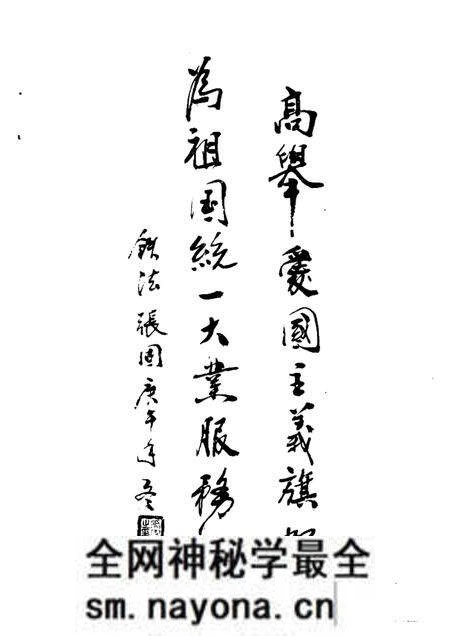 高舉愛國主義旗
為祖国統一大業服務
鉄法張国庚午年冬
全网神秘学最全
sm.nayona.cn